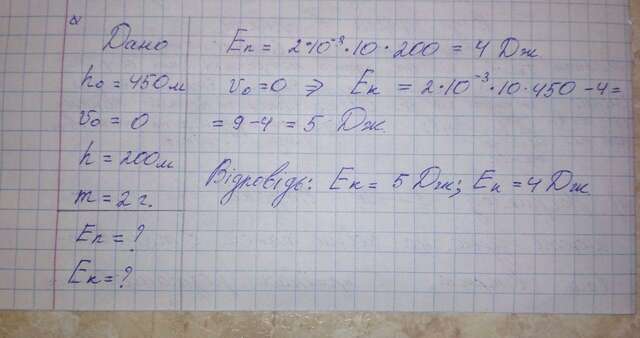 Дано
h₀ = 450 м
v₀ = 0
h = 200 м
m = 2 г.
Eп = ?
Eк = ?
Eп = 2·10⁻³·10·200 = 4 Дж
v₀ = 0 ⇒ Eк = 2·10⁻³·10·450 − 4 =
= 9 − 4 = 5 Дж.
Відповідь: Eк = 5 Дж; Eп = 4 Дж